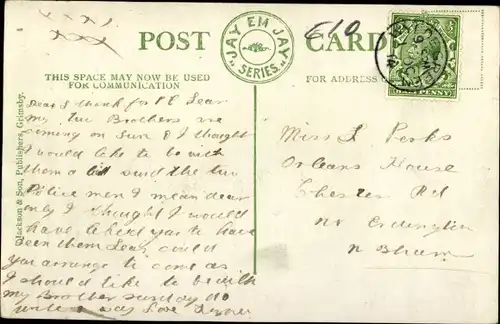 POST CARD
"JAY EM JAY" SERIES
£10
THIS SPACE MAY NOW BE USED
FOR COMMUNICATION
FOR ADDRESS
Jackson & Son, Publishers, Grimsby.
Dear I thank for P C Dear
my two Brothers are
coming on Sun & I thought
I would like to be with
them a bit said the two
Police men I mean dear
only I thought I would
have liked you to have
seen them Dear could
you arrange to come as
I should like to be with
my Brother Sunday do
write & say Love
Miss L Perks
Orleans House
Chester Rd
Nr Erdington
N Bham